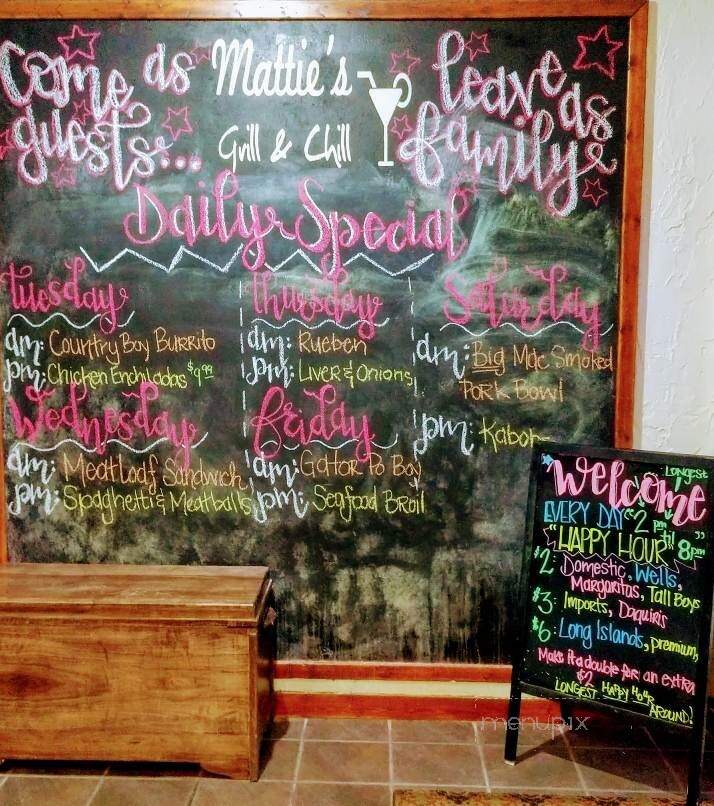 Come as
guests...
Mattie's
Grill & Chill
leave as
family
Daily Special
Tuesday
am: Country Boy Burrito
pm: Chicken Enchiladas $9.99
Wednesday
am: Meatloaf Sandwich
pm: Spaghetti & Meatballs
Thursday
am: Rueben
pm: Liver & Onions
Friday
am: Gator Po Boy
pm: Seafood Broil
Saturday
am: Big Mac Smoked
Pork Bowl
pm: Kabobs
Longest
Welcome
EVERY DAY "2 pm
'til
"HAPPY HOUR" 8pm
$2: Domestic, Wells,
Margaritas, Tall Boys
$3: Imports, Daquiris
$6: Long Islands, premium,
Make it a double for an extra
$2
LONGEST HAPPY HOUR
AROUND!
menupix